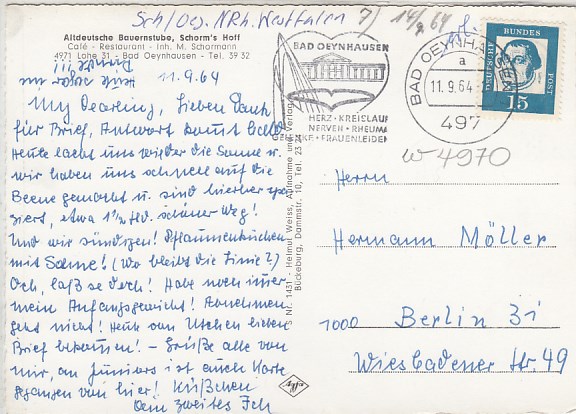 Sch/Oej. NRh. Westfalen 7/ 14/9 64
Altdeutsche Bauernstube, Schorm's Hoff
Café - Restaurant - Inh. M. Schormann
4971 Lohe 31 - Bad Oeynhausen - Tel. 39 32
11.9.64
My Dearling, Lieben Dank
für Brief, Antwort kommt bald
Heute lacht uns wieder die Sonne u.
wir haben uns schnell auf die
Beene gemacht u. sind hierher spa
ziert, etwa 1½ Std. schöner Weg!
Und wir sündigen! Pflaumenkuchen
mit Sahne! (Wo bleibt die Linie?)
Och, laß se doch! Habe noch immer
mein Anfangsgewicht! Abnehmen
geht nicht! Heute von Utchen lieben
Brief bekommen! – Grüße alle von
mir, an Juniors ist auch Karte
gegangen von hier! Küßchen
Dein zweites Ich
Nr. 1431 - Helmut Weiss, Aufnahme und Verlag
Bückeburg, Dammstr. 10, Tel. 23
Agfa
BAD OEYNHAUSEN
HERZ · KREISLAUF
NERVEN · RHEUMA
GELENKE · FRAUENLEIDEN
BAD OEYNHAUSEN
a
11.9.64
497
DEUTSCHE BUNDESPOST
15
W-4970
Herrn
Hermann Möller
1000 Berlin 31
Wiesbadener Str. 49